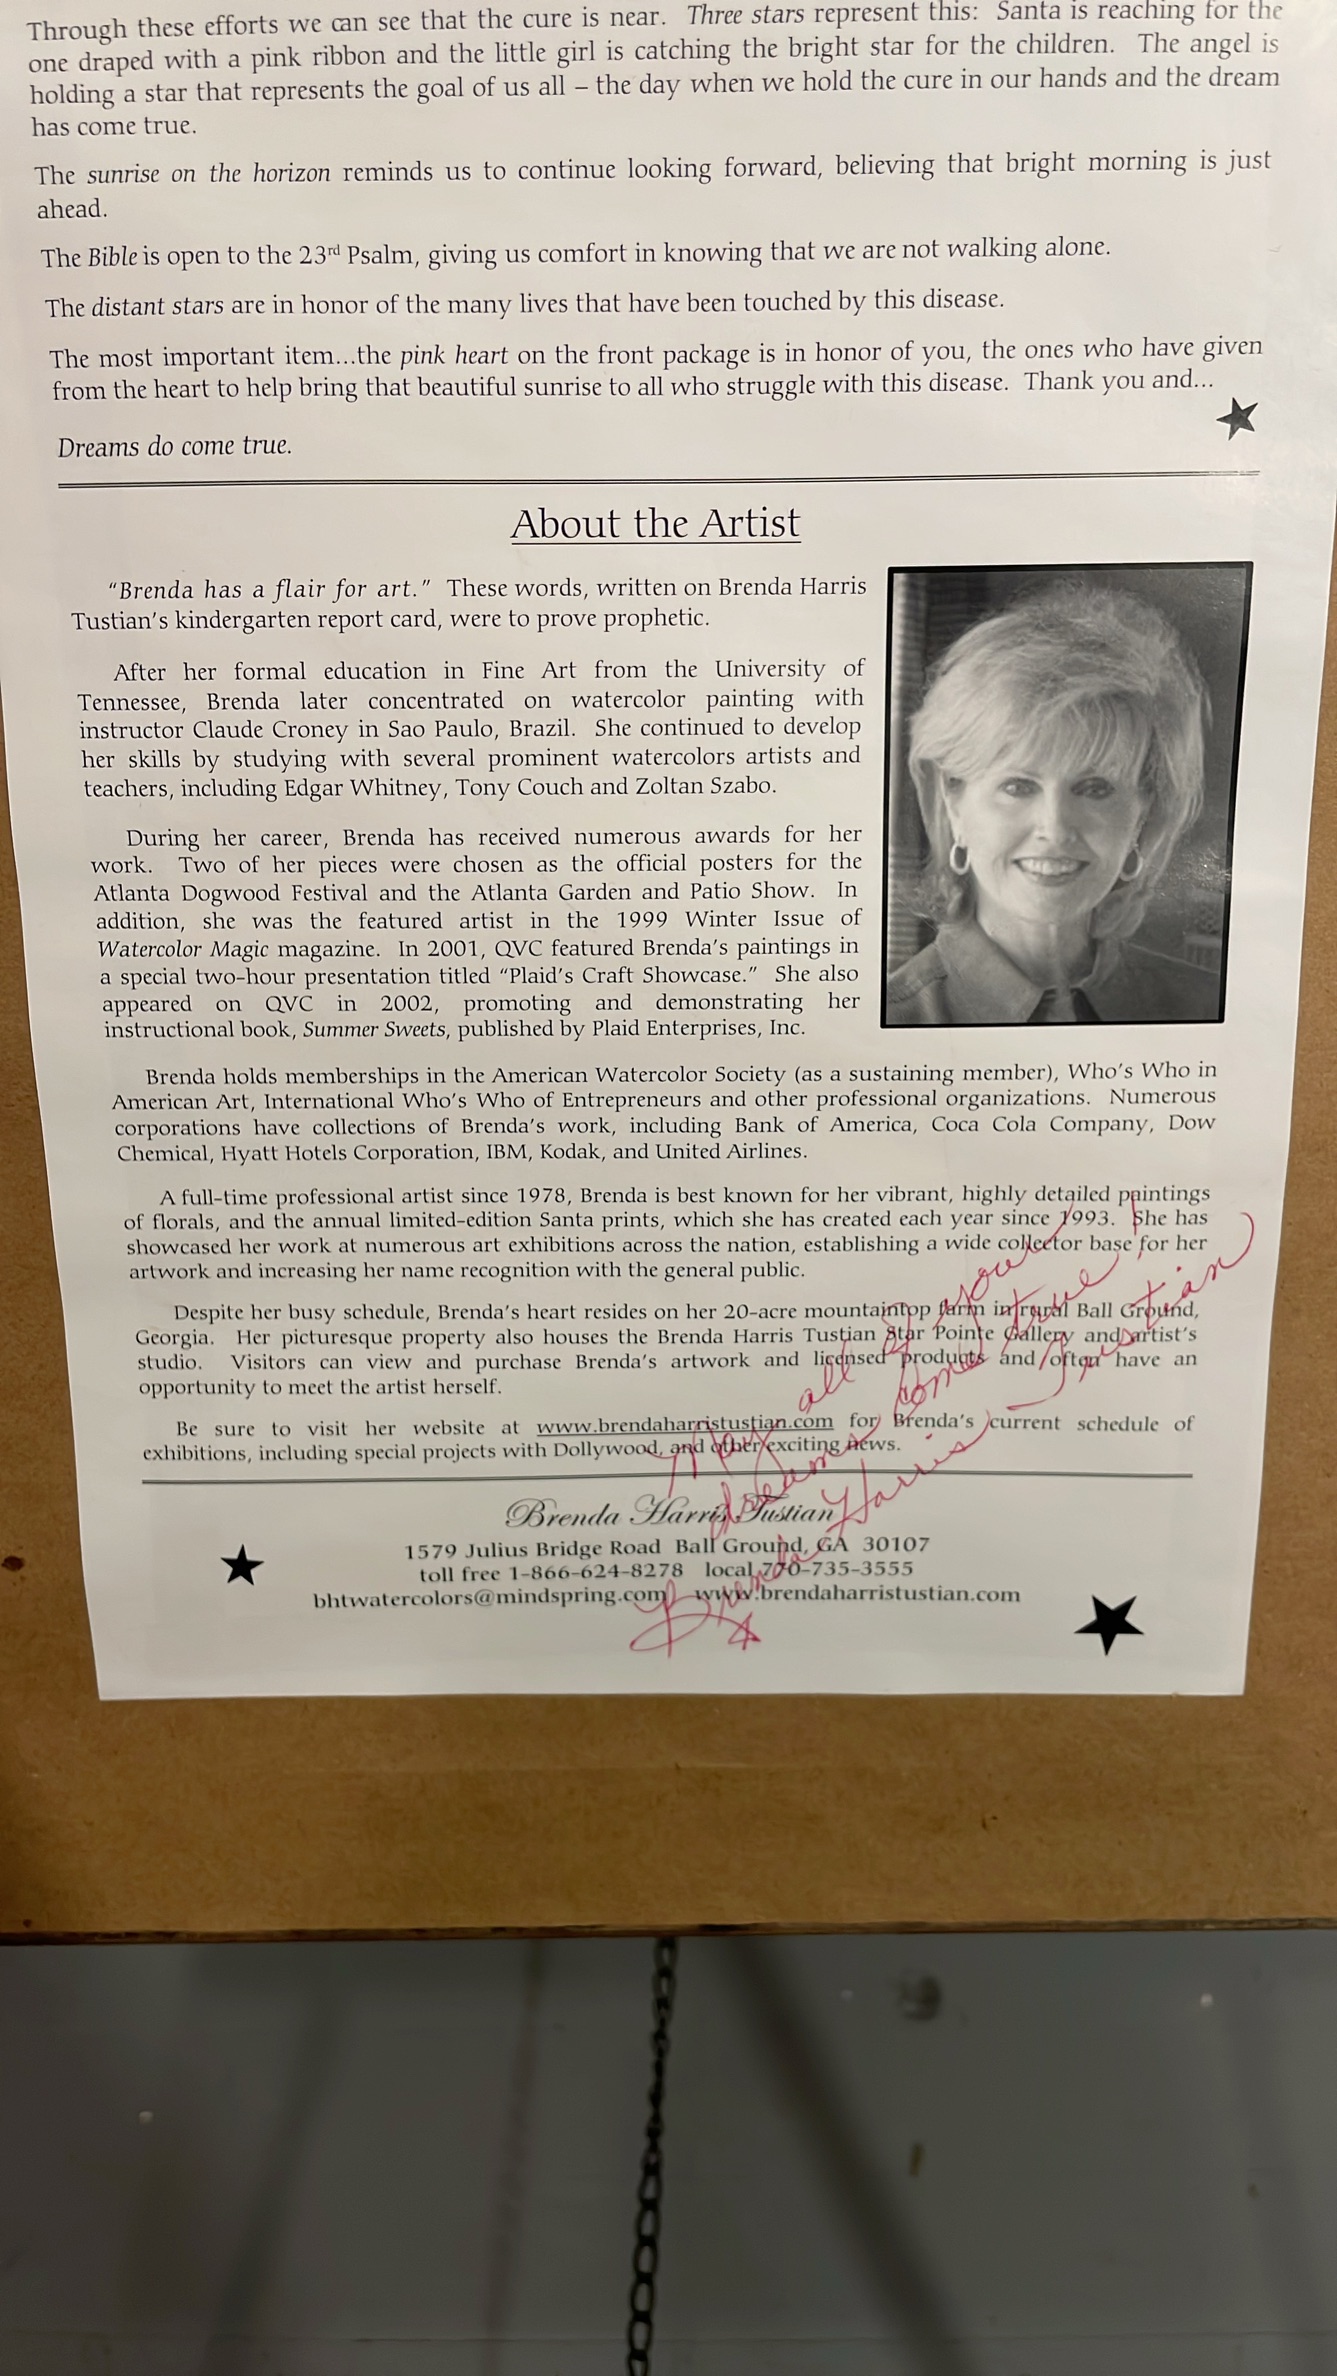 Through these efforts we can see that the cure is near. Three stars represent this: Santa is reaching for the
one draped with a pink ribbon and the little girl is catching the bright star for the children. The angel is
holding a star that represents the goal of us all – the day when we hold the cure in our hands and the dream
has come true.
The sunrise on the horizon reminds us to continue looking forward, believing that bright morning is just
ahead.
The Bible is open to the 23rd Psalm, giving us comfort in knowing that we are not walking alone.
The distant stars are in honor of the many lives that have been touched by this disease.
The most important item...the pink heart on the front package is in honor of you, the ones who have given
from the heart to help bring that beautiful sunrise to all who struggle with this disease. Thank you and...
Dreams do come true.
About the Artist
“Brenda has a flair for art.” These words, written on Brenda Harris
Tustian’s kindergarten report card, were to prove prophetic.
After her formal education in Fine Art from the University of
Tennessee, Brenda later concentrated on watercolor painting with
instructor Claude Croney in Sao Paulo, Brazil. She continued to develop
her skills by studying with several prominent watercolors artists and
teachers, including Edgar Whitney, Tony Couch and Zoltan Szabo.
During her career, Brenda has received numerous awards for her
work. Two of her pieces were chosen as the official posters for the
Atlanta Dogwood Festival and the Atlanta Garden and Patio Show. In
addition, she was the featured artist in the 1999 Winter Issue of
Watercolor Magic magazine. In 2001, QVC featured Brenda’s paintings in
a special two-hour presentation titled “Plaid’s Craft Showcase.” She also
appeared on QVC in 2002, promoting and demonstrating her
instructional book, Summer Sweets, published by Plaid Enterprises, Inc.
Brenda holds memberships in the American Watercolor Society (as a sustaining member), Who’s Who in
American Art, International Who’s Who of Entrepreneurs and other professional organizations. Numerous
corporations have collections of Brenda’s work, including Bank of America, Coca Cola Company, Dow
Chemical, Hyatt Hotels Corporation, IBM, Kodak, and United Airlines.
A full-time professional artist since 1978, Brenda is best known for her vibrant, highly detailed paintings
of florals, and the annual limited-edition Santa prints, which she has created each year since 1993. She has
showcased her work at numerous art exhibitions across the nation, establishing a wide collector base for her
artwork and increasing her name recognition with the general public.
Despite her busy schedule, Brenda’s heart resides on her 20-acre mountaintop farm in rural Ball Ground,
Georgia. Her picturesque property also houses the Brenda Harris Tustian Star Pointe Gallery and artist’s
studio. Visitors can view and purchase Brenda’s artwork and licensed products and often have an
opportunity to meet the artist herself.
Be sure to visit her website at www.brendaharristustian.com for Brenda’s current schedule of
exhibitions, including special projects with Dollywood, and other exciting news.
Brenda Harris Tustian
1579 Julius Bridge Road Ball Ground, GA 30107
toll free 1-866-624-8278 local 770-735-3555
bhtwatercolors@mindspring.com www.brendaharristustian.com
May all of your
dreams come true
Brenda Harris Tustian